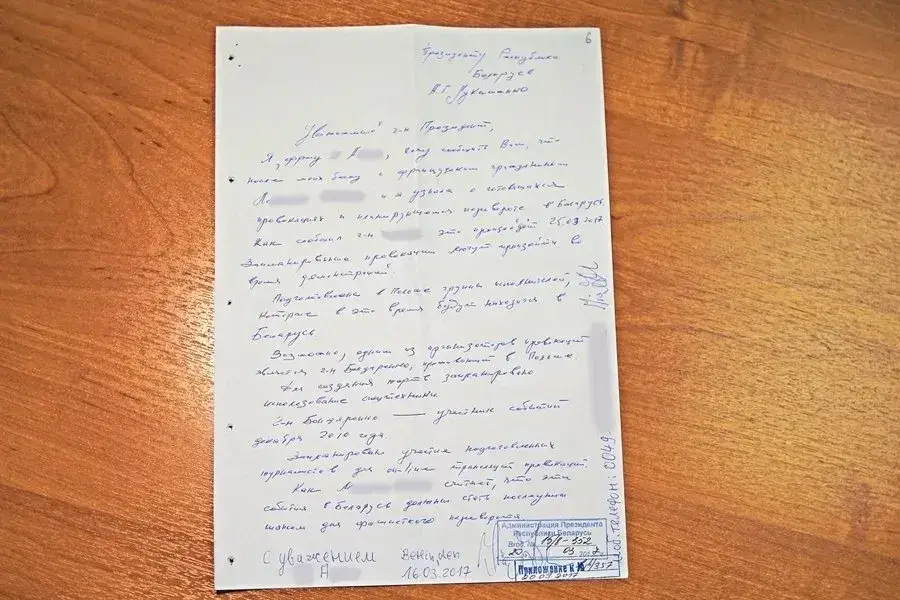 6
Президенту Республики
Беларусь
А.Г. Лукашенко
Уважаемый г-н Президент,
Я, фрау А , хочу сообщить Вам, что
после моей беседы с французским гражданином
и я узнала о готовящихся
провокациях и планирующемся перевороте в Беларусь.
Как сообщил г-н это произойдёт 25.03.2017
Запланированные провокации могут произойти во
время демонстраций.
Подготовлена в Польше группа исполнителей,
которые в это время будут находится в
Беларусь.
Возможно, одним из организаторов провокаций
является г-н Бондаренко, проживающий в Польше.
Для создания жертв запланировано
использование спецтехники.
г-н Бондаренко — участник событий
декабря 2010 года.
Запланировано участие подготовленных
журналистов для on-line трансляций провокаций.
Как считает, что эти
события в Беларусь должны стать последним
шагом для фашистского переворота
С уважением
А
16.03.2017
Администрация Президента
Республики Беларусь
Вход. №
20 03 2017
Приложение к №
моб. телефон: 0049